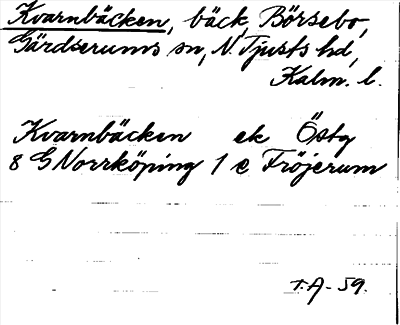 Kvarnbäcken, bäck, Börsebo,
Gärdserums sn, N. Tjusts hd,
Kalm. l.
Kvarnbäcken ek Östg
8 G Norrköping 1 e Fröjerum
T.A-59.